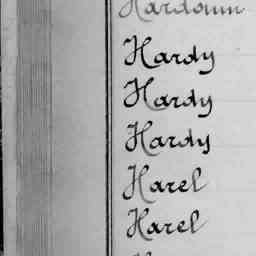 Hardouin
Hardy
Hardy
Hardy
Harel
Harel